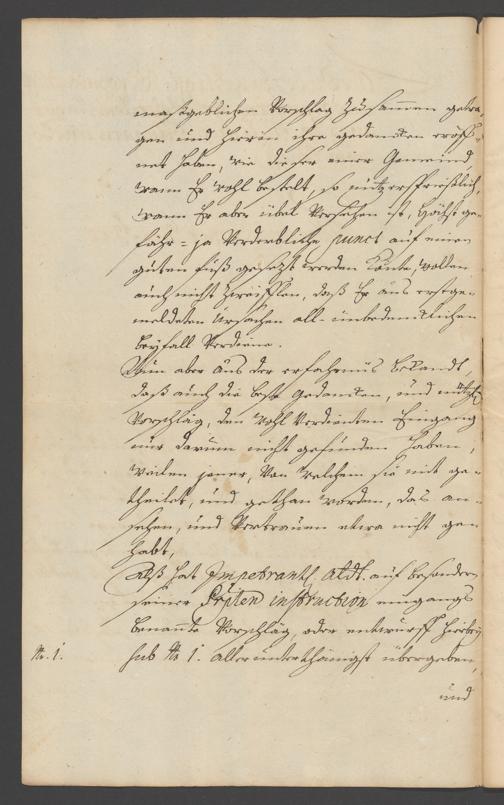 maßgeblichen Vorschlag zusammen getra-
gen und hierin ihre gedancken eröff-
net haben, wie dieser einer Gemeind,
wann Er wohl bestelt, so nutz ersprießlich,
wann Er aber übel Versehen ist, höchst ge-
fähr- ja Verderbliche punct auf einen
guten fuß gesetzt werden könte, wollen
auch nicht zweifflen, daß Er aus erstge-
meldeten Ursachen all-unbedencklichen
beyfall Verdiene.
Nun aber aus der erfahrnus bekandt,
daß auch die beste gedancken, und nützl.
Vorschläg, den wohl Verdienten Eingang
nur darum nicht gefunden haben,
weilen jener, Von welchem sie mit ge-
theilet, und gethan worden, das an-
sehen, und Vertrauen etwa nicht ge-
habt,
Alß hat Impetrant. Adt. auf besondern
seiner instruction eingangs
benannte Vorschläg, oder entwurff hiebey
Nr. 1. sub Nr. 1. allerunterthänigst übergeben,
und